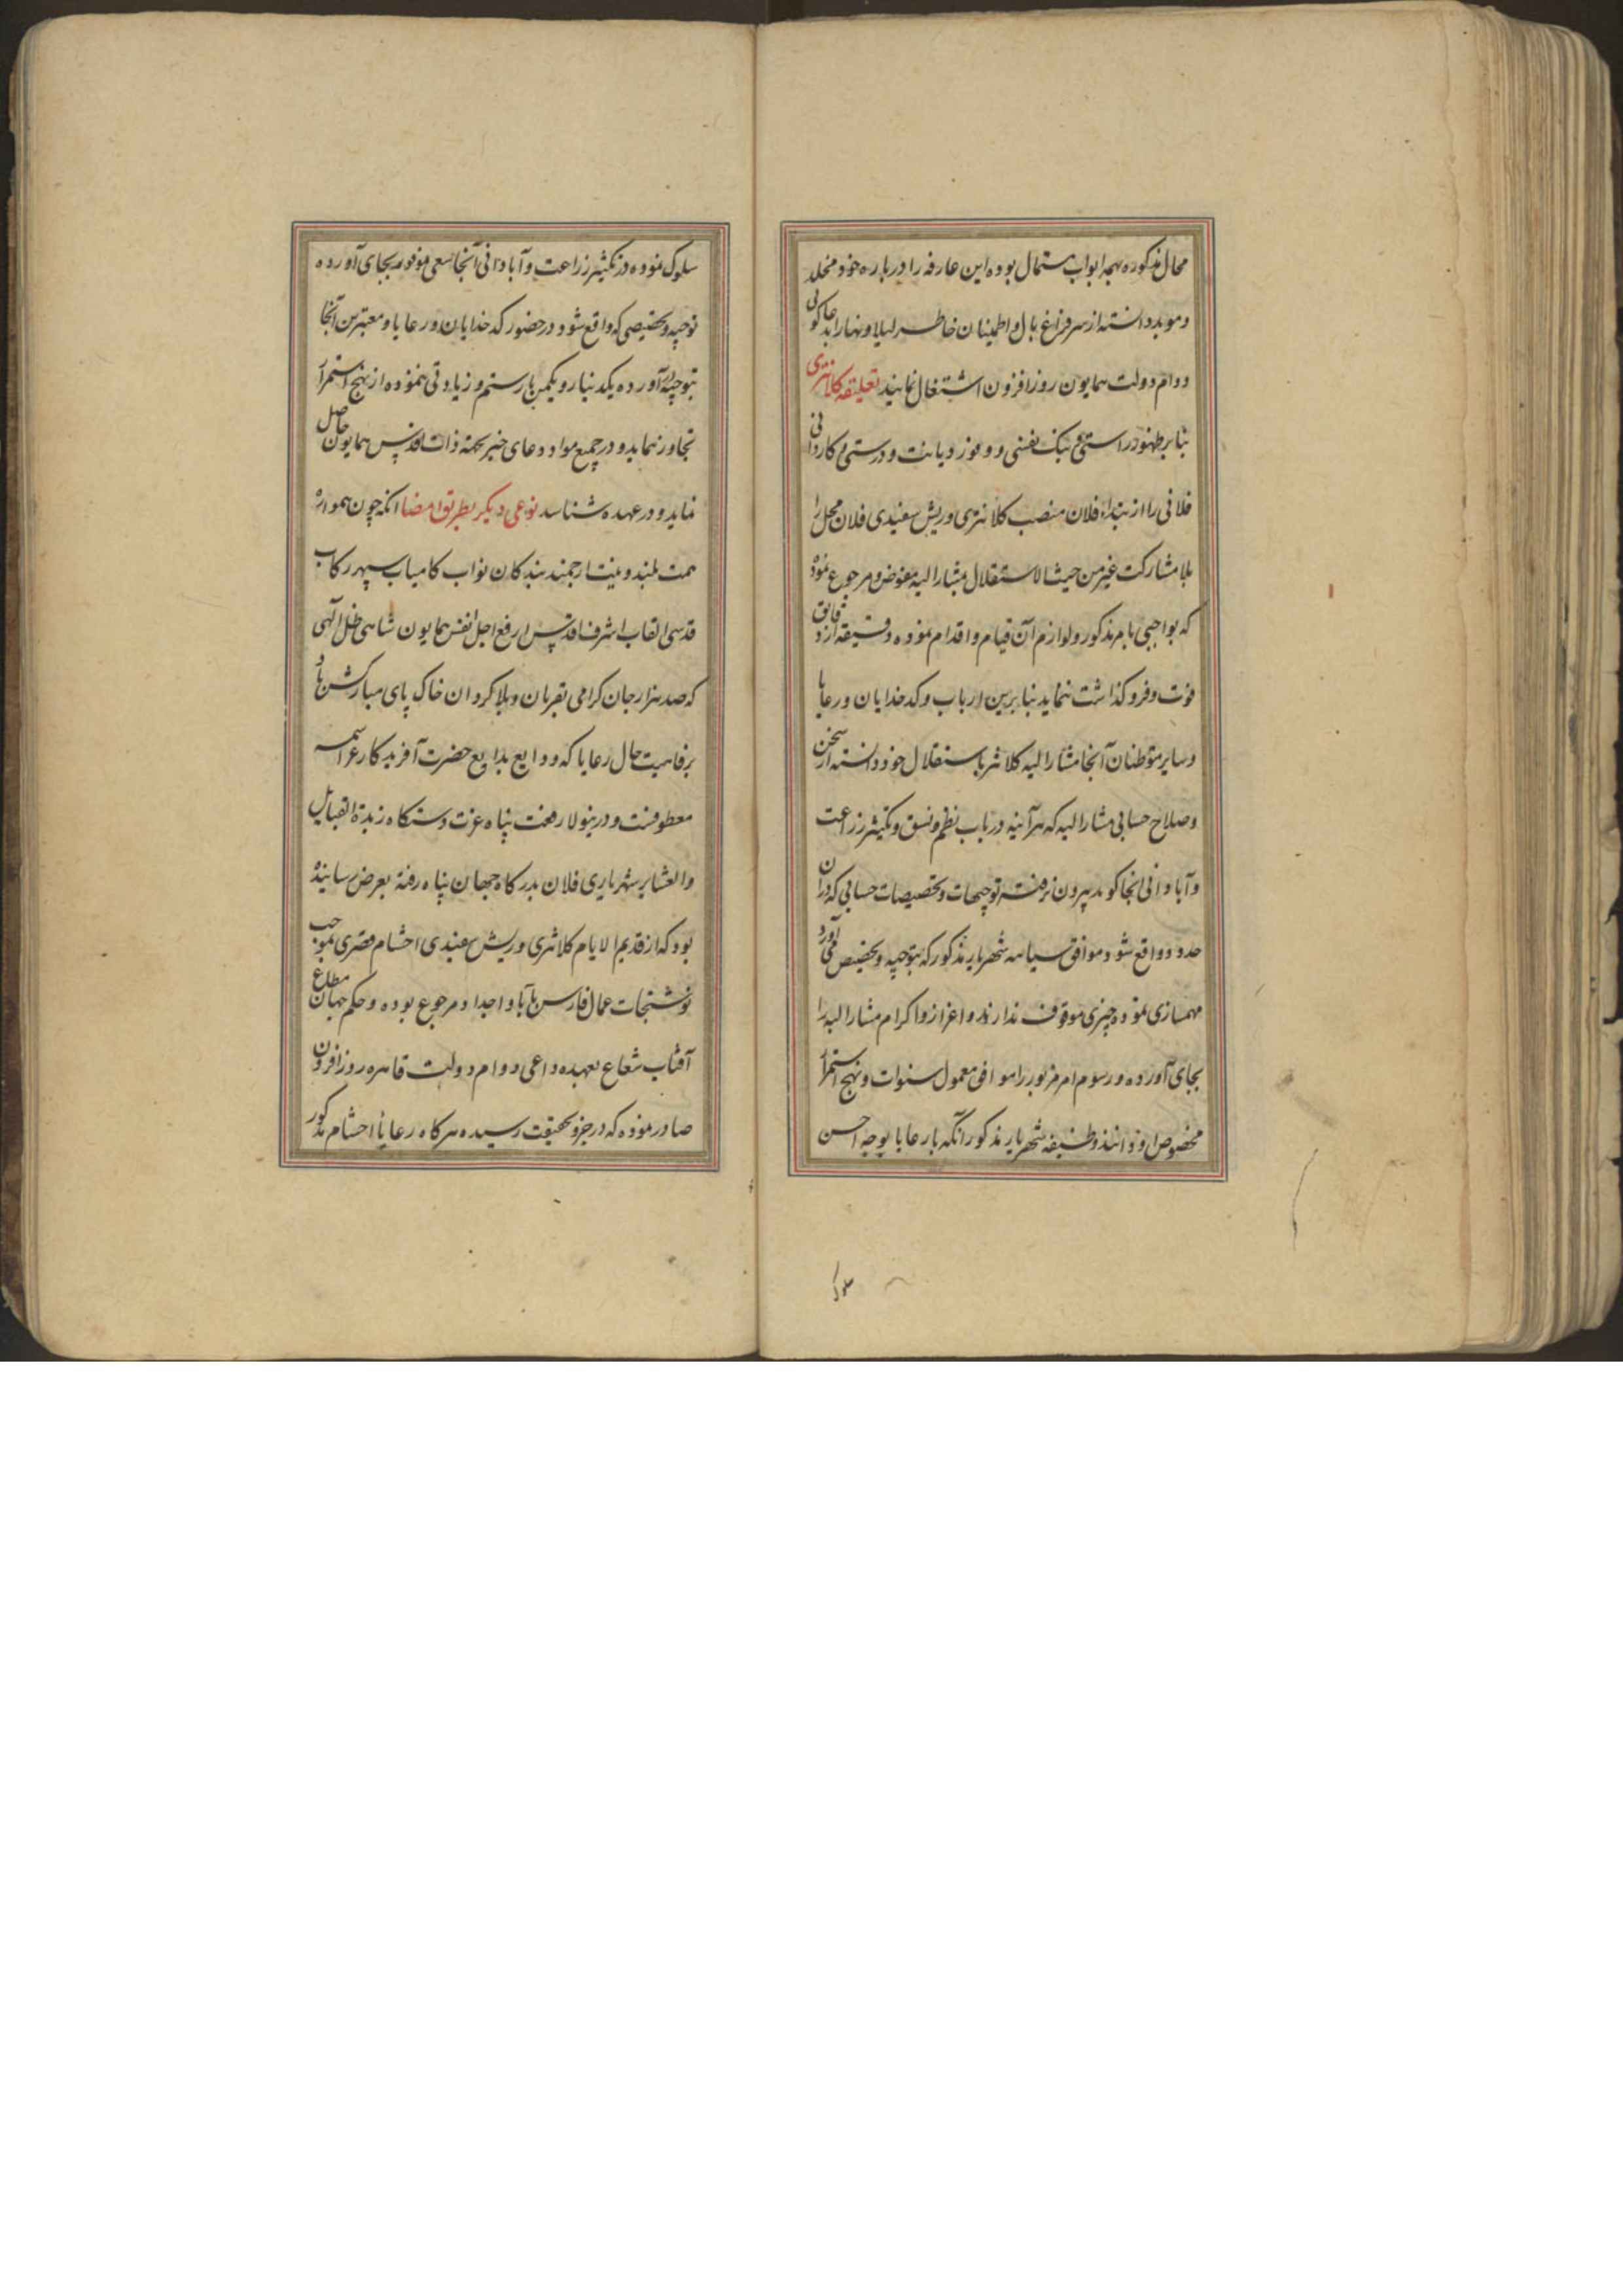 محال مذکوره بهمه ابواب مستمال بوده این عارفه را درباره خود مخلد
و موبد دانسته از سر فراغ بال و اطمینان خاطر لیلا و نهارا بدعاکویی
دوام دولت همایون روزافزون اشتغال نمایند تعلیقه کلانتری
بنابر ظهور راستی و نیک نفسی و وفور دیانت و درستی و کاردانی
فلانی را از ابتداء فلان منصب کلانتری و ریش سفیدی فلان محل را
بلا مشارکت غیر من حیث الاستقلال بمشارالیه مفوض و مرجوع نموده
که بواجبی بامر مذکور و لوازم آن قیام و اقدام نموده دقیقه از دقایق
فوت و فروکذاشت ننماید بنابرین ارباب و کدخدایان و رعایا
و سایر متوطنان آنجا مشارالیه کلانتر باستقلال خود دانسته از سخن
و صلاح حسابی مشارالیه که هرآینه در باب نظم و نسق و تکثیر زراعت
و آبادانی انجا کوید بیرون نرفته توجیهات و تخصیصات حسابی که در آن
حدود واقع شود موافق سیاهه شهریار مذکور که بتوجیه و تخصیص می آورد
مهمسازی نموده چیزی موقوف ندارند و اعزاز و اکرام مشارالیه را
بجای آورده و رسوم امر مزبور را موافق معمول سنوات و نهج استمرار
مخصوص او دانند وظیفه شهریار مذکور انکه با رعایا بوجه احسن
سلوک
سلوک نموده در تکثیر زراعت و آبادانی آنجا سعی موفور بجای آورده
توجیه و تخصیصی که واقع شود در حضور کدخدایان و رعایا و معتبرین آنجا
بتوجیه درآورده یکدینار و یکمن بار ستم و زیادتی ننموده از نهج استمرار
تجاوز ننماید و در جمیع مواد دعای خیر بجهة ذات اقدس همایون حاصل
نماید و در عهده شناسد نوعی دیکر بطریق امضا انکه چون همواره
همت بلند و نیت ارجمند بندکان نواب کامیاب سپهر رکاب
قدسی القاب اشرف اقدس ارفع اجل انفس همایون شاهی ظل الهی
که صد هزار جان کرامی بقربان و بلاکردان خاک پای مبارکش باد
برفاهیت حال رعایا که ودایع بدایع حضرت آفریدکار عز اسمه
معطوفست و درینولا رفعت پناه عزت دستکاه زبدة القبایل
و العشایر شهریاری فلان بدرکاه جهان پناه رفته بعرض رسانیده
بود که از قدیم الایام کلانتری و ریش سفیدی احشام قصری بموجب
نوشتجات عمال فارس بآبا و اجداد مرجوع بوده و حکم جهان مطاع
آفتاب شعاع بعهده داعی دوام دولت قاهره روزافزون
صادر نموده که در جزو بحقیقت رسیده هرکاه رعایا احشام مذکور